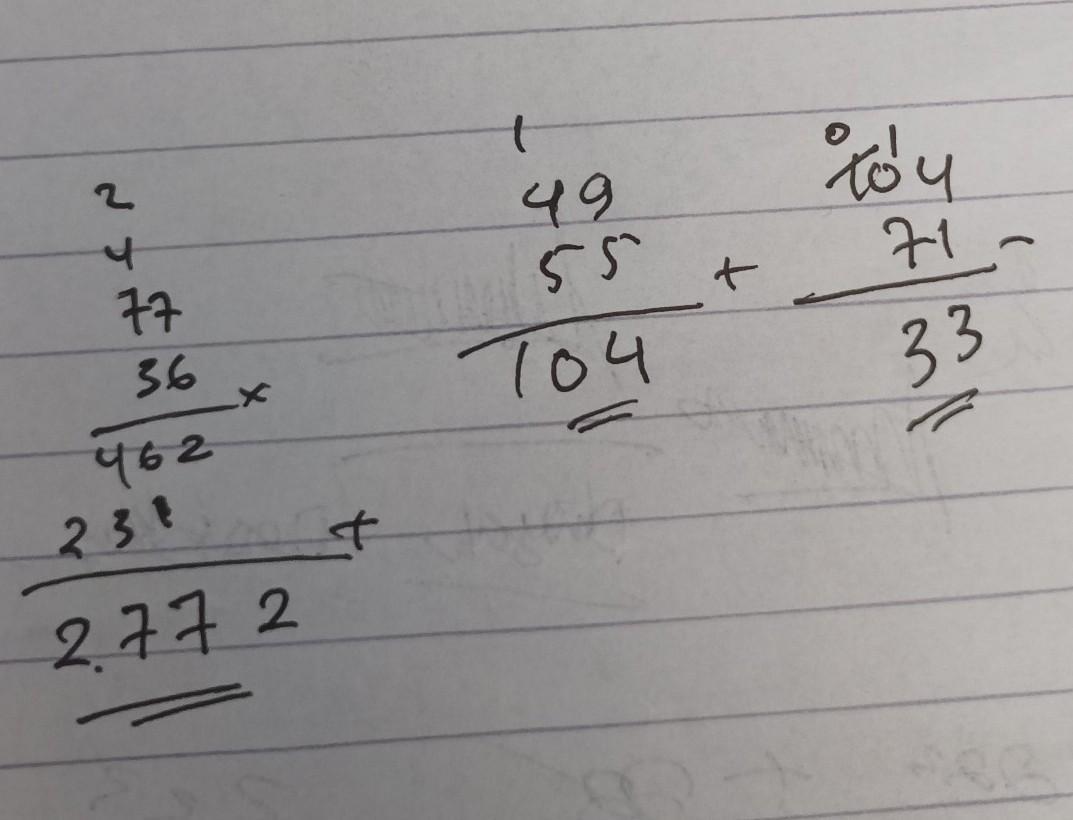 2
4
77
36 ×
462
231 +
2.772
1
49
55 +
104
0 1
104
71 -
33